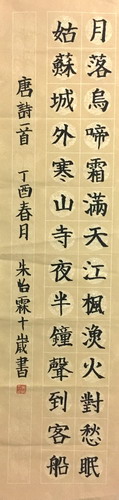 月落烏啼霜滿天江楓漁火對愁眠
姑蘇城外寒山寺夜半鐘聲到客船
唐詩一首 丁酉春月 朱怡霖十歲書